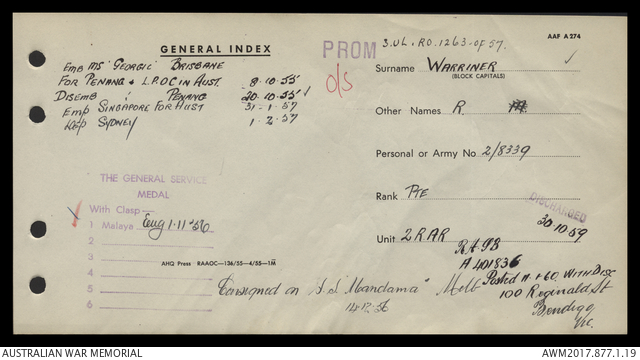 AAF A 274
GENERAL INDEX
PROM
3.UL.RO.1263.OF 57.
EMB MS "GEORGIC" BRISBANE
FOR PENANG & L.P.O.C IN AUST. 8.10.55
DISEMB : PENANG 20.10.55
EMB SINGAPORE FOR AUST 31-1-57
SYDNEY 1.2.57
O/S
Surname WARRINER
(BLOCK CAPITALS)
Other Names R.
Personal or Army No. 2/8339
Rank PTE
DISCHARGED
30.10.59
Unit 2RAR
THE GENERAL SERVICE
MEDAL
With Clasp
1 Malaya 1.11.56
2
3
4
5
6
AHQ Press RAAOC—136/55—4/55—1M
A 401836
Consigned on S.S "Mandama" Melb
14.12.56
Posted 11.1.60. WITH DISC
100 Reginald St
Bendigo
Vic.
AUSTRALIAN WAR MEMORIAL
AWM2017.877.1.19